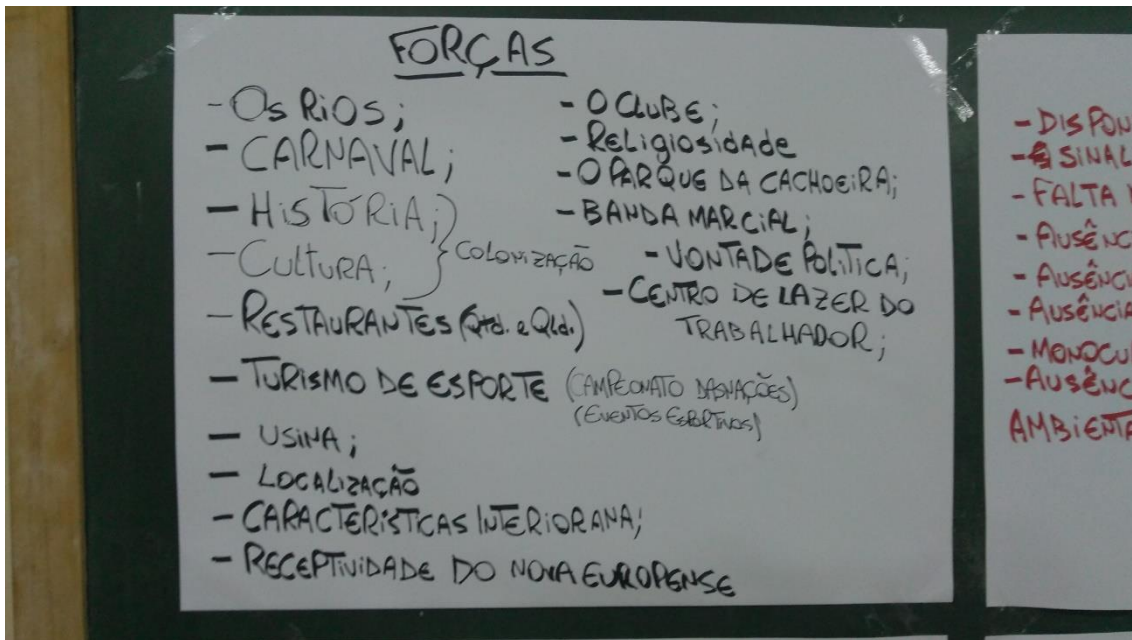 FORÇAS
- Os Rios;
- CARNAVAL;
- HISTÓRIA;
- CULTURA;
COLONIZAÇÃO
- RESTAURANTES (Qtd. e Qld.)
- TURISMO DE ESPORTE (CAMPEONATO DAS NAÇÕES)
(EVENTOS ESPORTIVOS)
- USINA;
- LOCALIZAÇÃO
- CARACTERÍSTICAS INTERIORANA;
- RECEPTIVIDADE DO NOVA EUROPENSE
- O CLUBE;
- Religiosidade
- O PARQUE DA CACHOEIRA;
- BANDA MARCIAL;
- VONTADE POLÍTICA;
- CENTRO DE LAZER DO
TRABALHADOR;
- DISPON
- SINAL
- FALTA
- AUSÊNC
- AUSÊNCI
- AUSÊNCIA
- MONOCU
- AUSÊNC
AMBIENTA